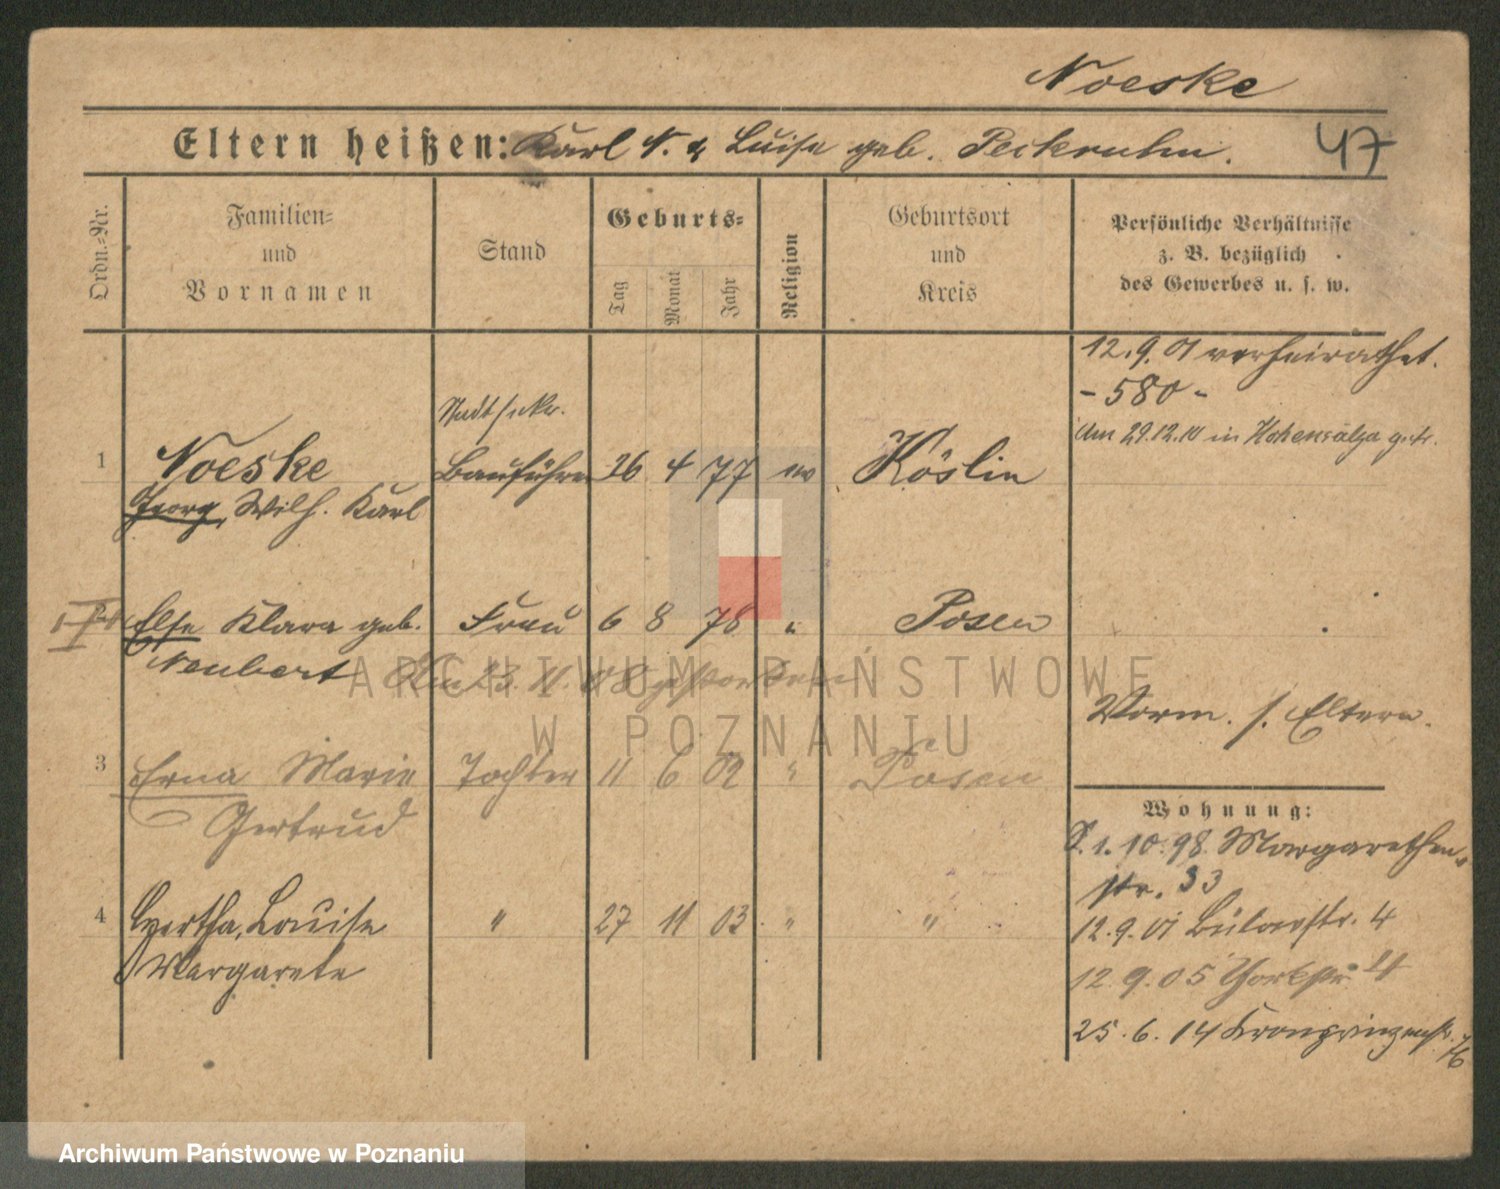 Noeske
Eltern heißen: Karl N. & Luise geb. Peckruhn.
47
Ordn.-Nr.
Familien-
und
Vornamen
Stand
Geburts-
Tag
Monat
Jahr
Religion
Geburtsort
und
Kreis
Persönliche Verhältnisse
z. B. bezüglich
des Gewerbes u. s. w.
12.9.01 verheirathet.
- 580 -
Am 29.12.10 in Hohensalza
Stadtsekr.
1 Noeske Bauführer 26 4 77 ev Köslin
Georg, Wilh. Karl
Else Klara geb. Frau 6 8 78 " Posen
Neubert Am 23.11.08 gestorben
Vorm. s. Eltern.
3 Erna Marie Tochter 11 6 02 " Posen
Gertrud
Wohnung:
1.10.98 Margarethen-
str. 33
4 Hertha, Louise " 27 11 03 " "
Margarete
12.9.01 Bülowstr. 4
12.9.05 Yorkstr. 4
25.6.14 Kronprinzenstr.
ARCHIWUM PAŃSTWOWE
W POZNANIU
Archiwum Państwowe w Poznaniu